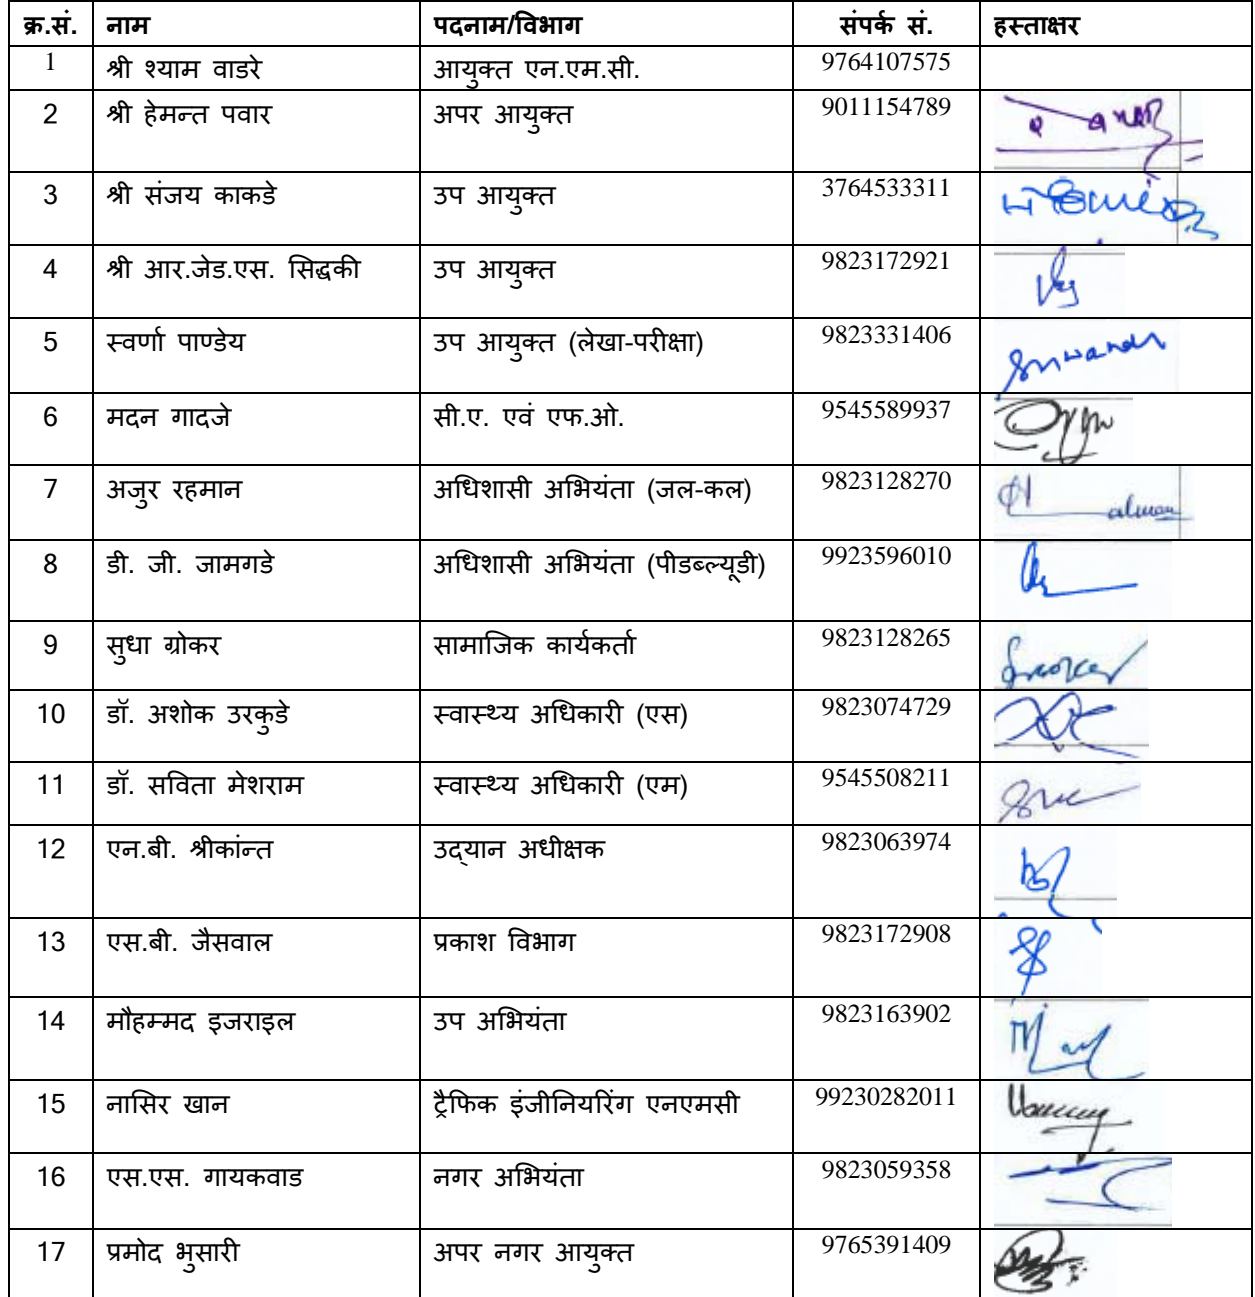 क्र.सं. नाम पदनाम/विभाग संपर्क सं. हस्ताक्षर
1 श्री श्याम वाडरे आयुक्त एन.एम.सी. 9764107575
2 श्री हेमन्त पवार अपर आयुक्त 9011154789
3 श्री संजय काकडे उप आयुक्त 3764533311
4 श्री आर.जेड.एस. सिद्धकी उप आयुक्त 9823172921
5 स्वर्णा पाण्डेय उप आयुक्त (लेखा-परीक्षा) 9823331406
6 मदन गादजे सी.ए. एवं एफ.ओ. 9545589937
7 अजुर रहमान अधिशासी अभियंता (जल-कल) 9823128270
8 डी. जी. जामगडे अधिशासी अभियंता (पीडब्ल्यूडी) 9923596010
9 सुधा ग्रोकर सामाजिक कार्यकर्ता 9823128265
10 डॉ. अशोक उरकुडे स्वास्थ्य अधिकारी (एस) 9823074729
11 डॉ. सविता मेशराम स्वास्थ्य अधिकारी (एम) 9545508211
12 एन.बी. श्रीकांन्त उद्यान अधीक्षक 9823063974
13 एस.बी. जैसवाल प्रकाश विभाग 9823172908
14 मौहम्मद इजराइल उप अभियंता 9823163902
15 नासिर खान ट्रैफिक इंजीनियरिंग एनएमसी 99230282011
16 एस.एस. गायकवाड नगर अभियंता 9823059358
17 प्रमोद भुसारी अपर नगर आयुक्त 9765391409